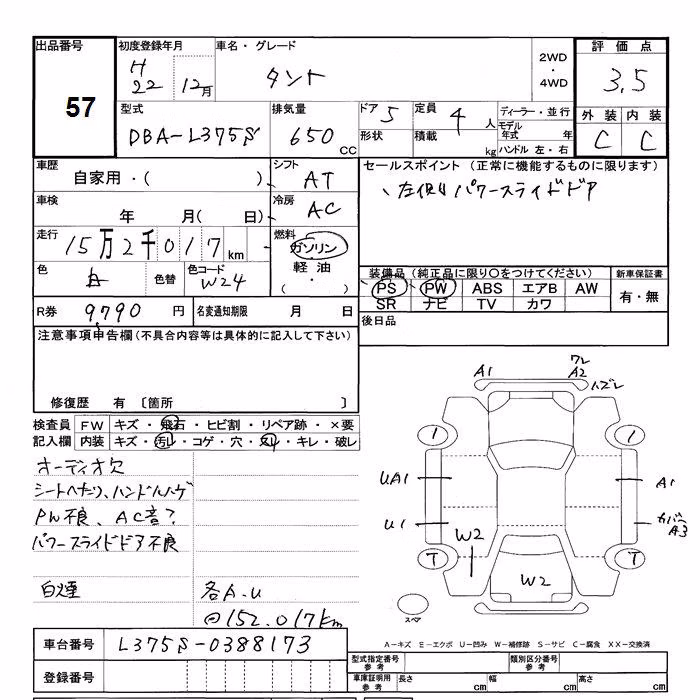 出品番号 初度登録年月 車名・グレード 2WD・4WD 評価点
57 H22 12月 タント 3.5
型式 排気量 ドア 5 定員 4人 ディーラー・並行 外装 内装
DBA-L375S 650CC 形状 積載 kg モデル年式 年 ハンドル 左・右 C C
車歴 自家用・( ) シフト AT セールスポイント (正常に機能するものに限ります)
車検 年 月( 日) 冷房 AC 、左側パワースライドドア
走行 15万2千017km 燃料 ガソリン 軽油・( )
色 白 色替 色コード W24
装備品(純正品に限り○をつけてください) 新車保証書
PS PW ABS エアB AW 有・無
SR ナビ TV カワ
R券 9,790円 名変通知期限 月 日 後日品
注意事項申告欄(不具合内容等は具体的に記入して下さい)
修復歴 有 〔箇所 〕
検査員 FW キズ・飛石・ヒビ割・リペア跡・×要
記入欄 内装 キズ・汚レ・コゲ・穴・スレ・キレ・破レ
オーディオ欠
シートヘたり、ハンドルハゲ
PW不良、AC音?
パワースライドドア不良
白煙 各A.U
@152.017km
A1 ワレ A2 ハズレ
1 1
UA1 A1
U1 カバラ A3
W2
T T
W2
スペア
A-キズ E-エクボ U-凹み W-補修跡 S-サビ C-腐食 XX-交換済
車台番号 L375S-0388173
登録番号
型式指定番号 参考 類別区分番号 参考
車庫証明用 参考 長さ cm 幅 cm 高さ cm